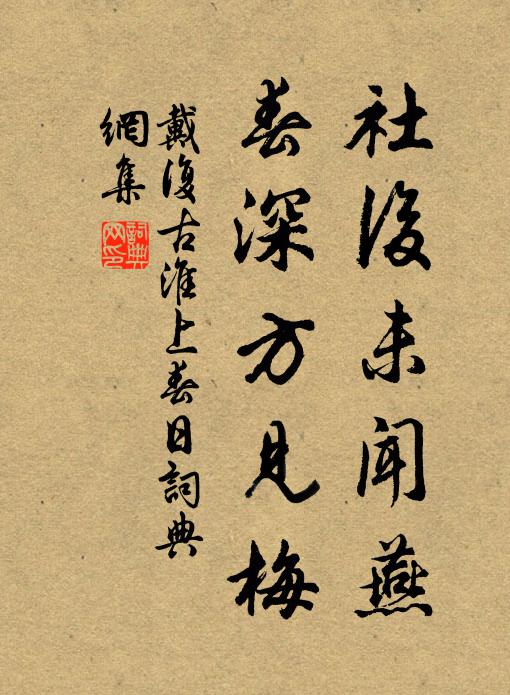 社後未聞燕
春深方見梅
戴復古淮上春日詞典
網集
詞典
网印